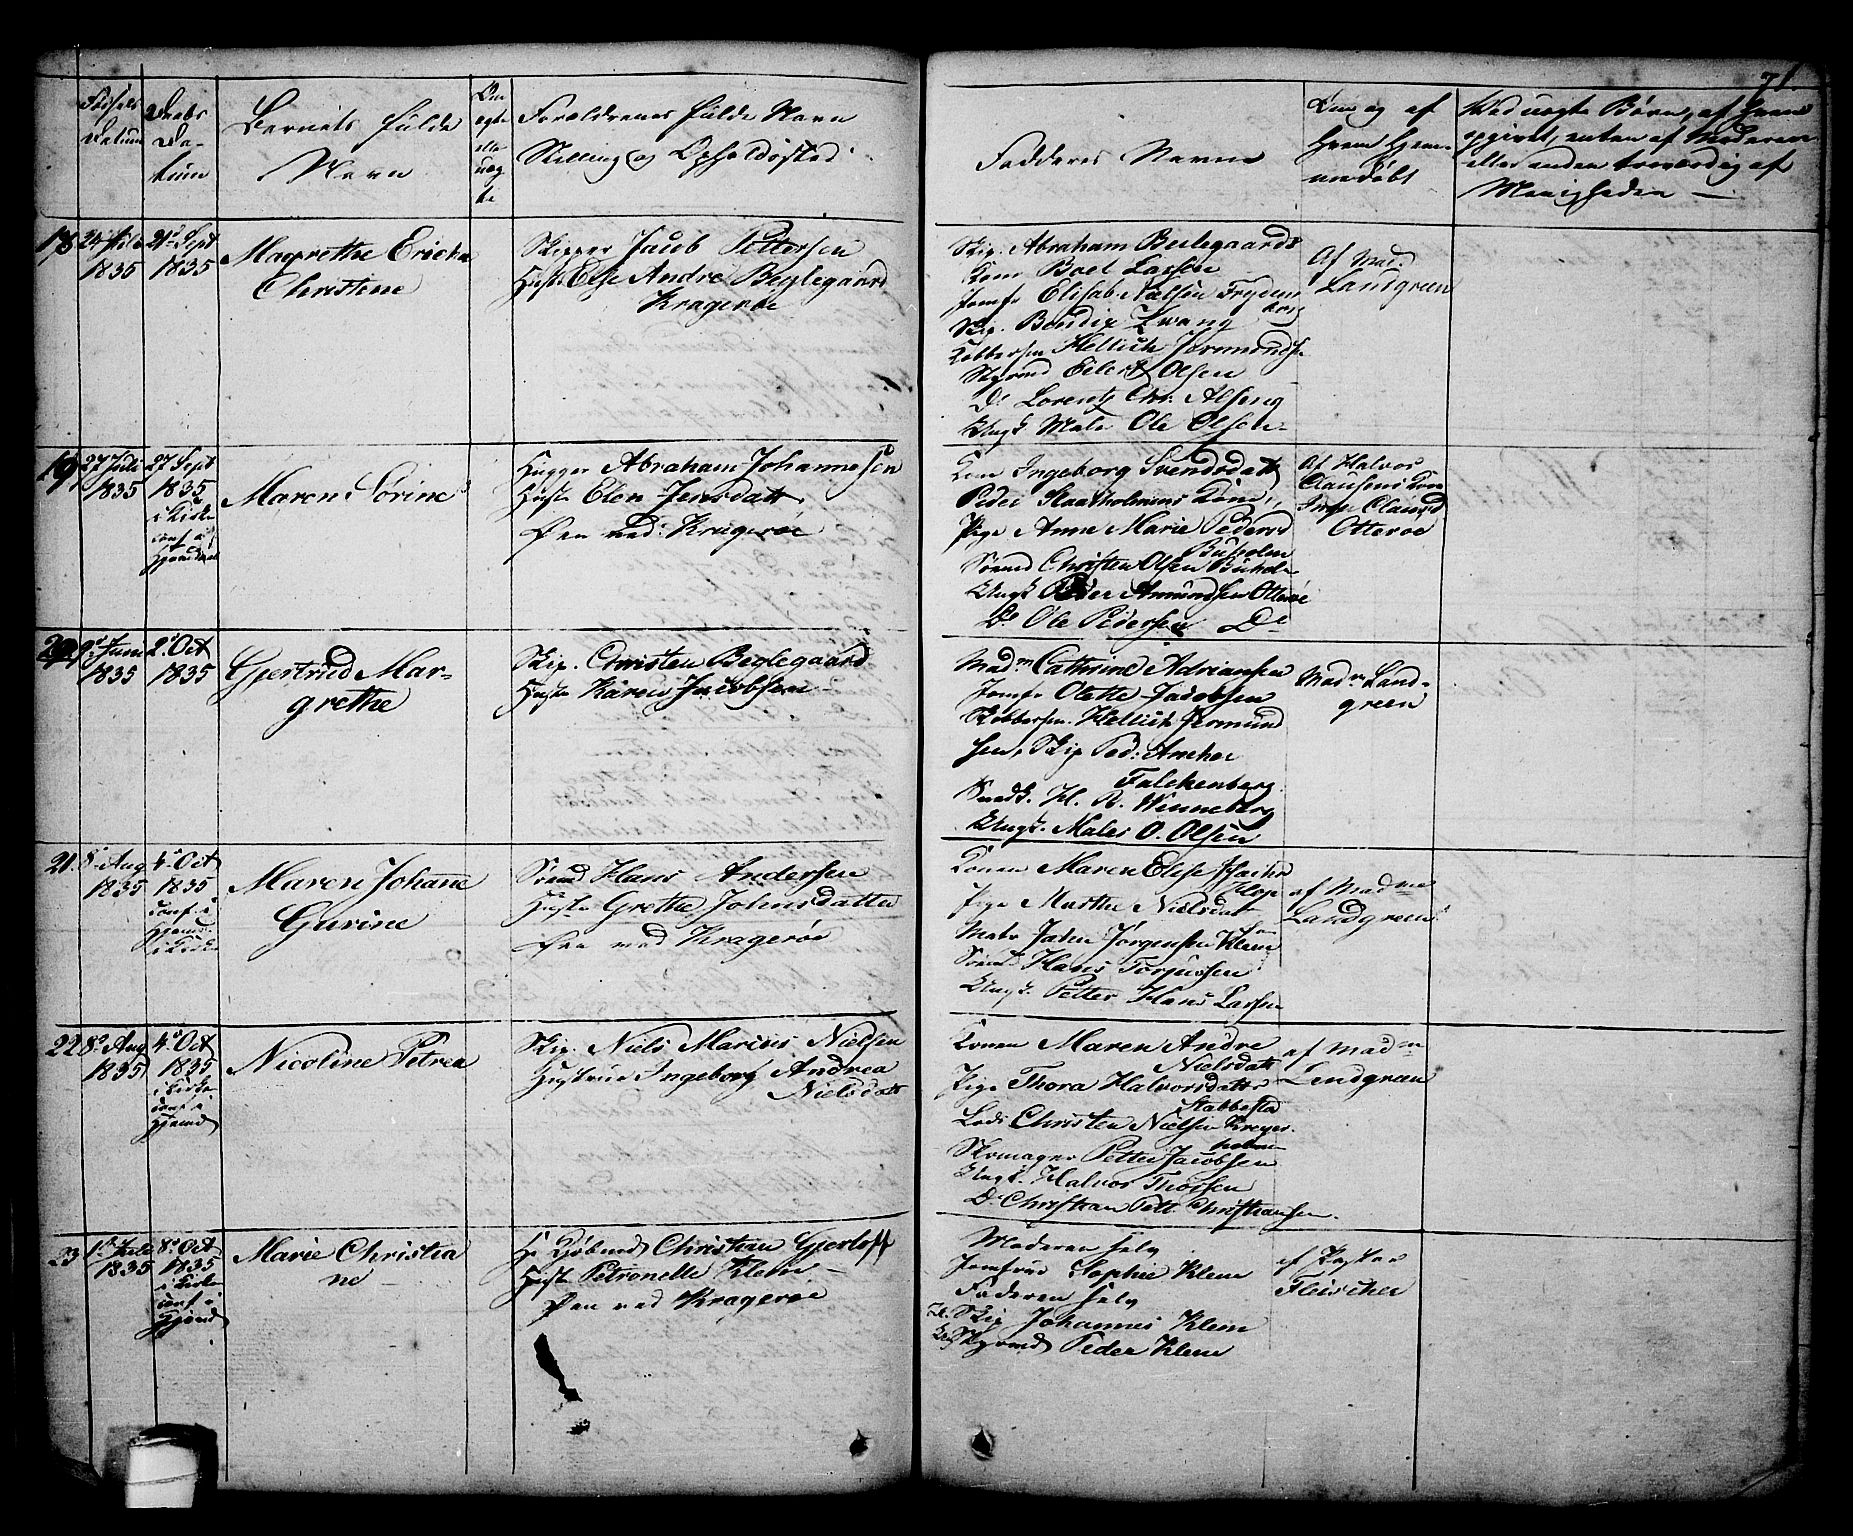 71.
Fødsels Datum
Daabs Datum
Barnets fulde Navn
Om ægte eller uægte
Forældrenes fulde Navn
Stilling og Opholdssted
Faddernes Navne
Om og af Hvem Hjemmedøbt
Ved uægte Børn, af hvem
opgivet, enten af Moderen
eller anden troværdig af
Menigheden
18
1835
21de Sept
1835
Magrethe Ericka
Christine
Skipper Jacob Pettersen
Hustr Else Andre Beglegaard
Kragerøe
Skip. Abraham Beslegaards
Kone Boel Larsen
Jomfr Elisab. Nielsen Frydens
borg
Skip. Bendix Tvang
Kobbersm Hellich Jermunds
Styrmd Eilert Olsen
Do Lorentz Chr. Alseng
Ungk. Male Ole Olsen
Af Mad.
Landgreen
19
27 Juli
1835
27 Sept
1835
i Kirke
conf i
Hjemmet
Maren Sørine
Hugger Abraham Johannesen
Hustr Elen Jensdatt
Øen ved Kragerøe
Kon Ingeborg Svendsdatt
Peder Staalholmens Kone,
Pige Anne Marie Pedersd
Buholm
Sømd Christen Olsen Buholm
Ungk Peder Amundsen Otterøe
Do Ole Pedersen Do
Af Halvor
Clausens Kone
Inger Clausd
Otterøe
20
9de Juni
1835
2de Oct
1835
Gjertrud Mar-
grethe
Skip. Christen Beglegaard
Hustr Karen Jacobsen
Madm Cathrine Adriansen
Jomfr Olette Jacobsen
Kobbersm. Hellich Jermund
sen, Skip Ped: Ancher
Falckenberg
Snedk. H. R. Winneberg
Ungk. Males O. Olsen
Madm Land-
green
21.
8de Aug
1835
4de Oct
1835
conf i
Hjemd
i Kirke
Maren Johane
Gurine
Sømd Hans Andersen
Hustr Grethe Johnsdatter
Øen ved Kragerøe
Konen Maren Elise
Pige Marthe Nielsdatt
Matr Jørgensen Klem
Sømd Hans Torjussen
Ungk. Petter Hans Larsen
af Madme
Landgreen
22
8de Aug
1835
4de Oct
1835
i Kirke
conf i
Hjemd
Nicoline Petrea
Skip. Niels Marius Nielsen
Hustrue Ingeborg Andrea
Nielsdatt
Konen Maren Andre
Nielsdatt
Pige Thora Halvorsdatter
Stabbestad
Lods Christen Nielsen Kreyer-
holmen
Skomager Petter Jacobsen
Ungk. Halvor Thorsen
Do Christian Pett Christiansen.
af Madm
Lendgreen
23
1ste Juli
1835
8de Oct
1835
i Kirke
conf i
Hjemd
Marie Christia
ne
Hr Kjøbmd Christian Gjerloff
Hustr Petronelle Klem
Øen ved Kragerøe
Moderen selv
Jomfrue Sophie Klem
Faderen selv
Skip Johannes Klem
Styrmd Peder Klem
af Pastor
Fleischer